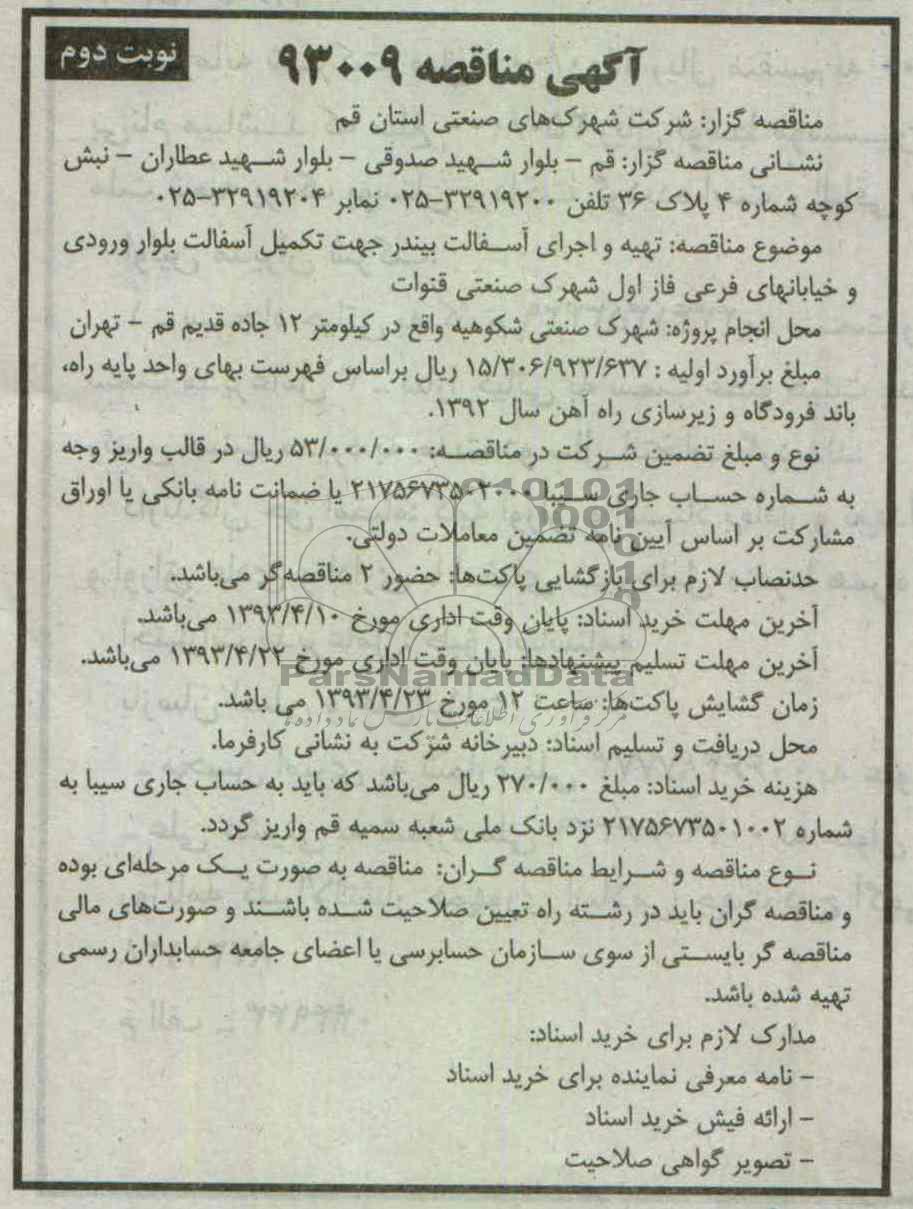 نوبت دوم
آگهی مناقصه ۹۳۰۰۹
مناقصه گزار: شرکت شهرک‌های صنعتی استان قم
نشانی مناقصه گزار: قم – بلوار شهید صدوقی – بلوار شهید عطاران – نبش
کوچه شماره ۴ پلاک ۳۶ تلفن ۳۲۹۱۹۲۰۰-۰۲۵ نمابر ۳۲۹۱۹۲۰۴-۰۲۵
موضوع مناقصه: تهیه و اجرای آسفالت بیندر جهت تکمیل آسفالت بلوار ورودی
و خیابانهای فرعی فاز اول شهرک صنعتی قنوات
محل انجام پروژه: شهرک صنعتی شکوهیه واقع در کیلومتر ۱۲ جاده قدیم قم – تهران
مبلغ برآورد اولیه : ۱۵/۳۰۶/۹۲۳/۶۳۷ ریال براساس فهرست بهای واحد پایه راه،
باند فرودگاه و زیرسازی راه آهن سال ۱۳۹۲.
نوع و مبلغ تضمین شرکت در مناقصه: ۵۳/۰۰۰/۰۰۰ ریال در قالب واریز وجه
به شماره حساب جاری سیبا ۲۱۷۵۶۷۳۵۰۲۰۰۰ یا ضمانت نامه بانکی یا اوراق
مشارکت بر اساس آیین نامه تضمین معاملات دولتی.
حدنصاب لازم برای بازگشایی پاکت‌ها: حضور ۲ مناقصه‌گر می‌باشد.
آخرین مهلت خرید اسناد: پایان وقت اداری مورخ ۱۳۹۳/۴/۱۰ می‌باشد.
آخرین مهلت تسلیم پیشنهادها: پایان وقت اداری مورخ ۱۳۹۳/۴/۲۲ می‌باشد.
ParsNamadData
زمان گشایش پاکت‌ها: ساعت ۱۲ مورخ ۱۳۹۳/۴/۲۳ می باشد.
محل دریافت و تسلیم اسناد: دبیرخانه شرکت به نشانی کارفرما.
هزینه خرید اسناد: مبلغ ۲۷۰/۰۰۰ ریال می‌باشد که باید به حساب جاری سیبا به
شماره ۲۱۷۵۶۷۳۵۰۱۰۰۲ نزد بانک ملی شعبه سمیه قم واریز گردد.
نوع مناقصه و شرایط مناقصه گران: مناقصه به صورت یک مرحله‌ای بوده
و مناقصه گران باید در رشته راه تعیین صلاحیت شده باشند و صورت‌های مالی
مناقصه گر بایستی از سوی سازمان حسابرسی یا اعضای جامعه حسابداران رسمی
تهیه شده باشد.
مدارک لازم برای خرید اسناد:
– نامه معرفی نماینده برای خرید اسناد
– ارائه فیش خرید اسناد
– تصویر گواهی صلاحیت